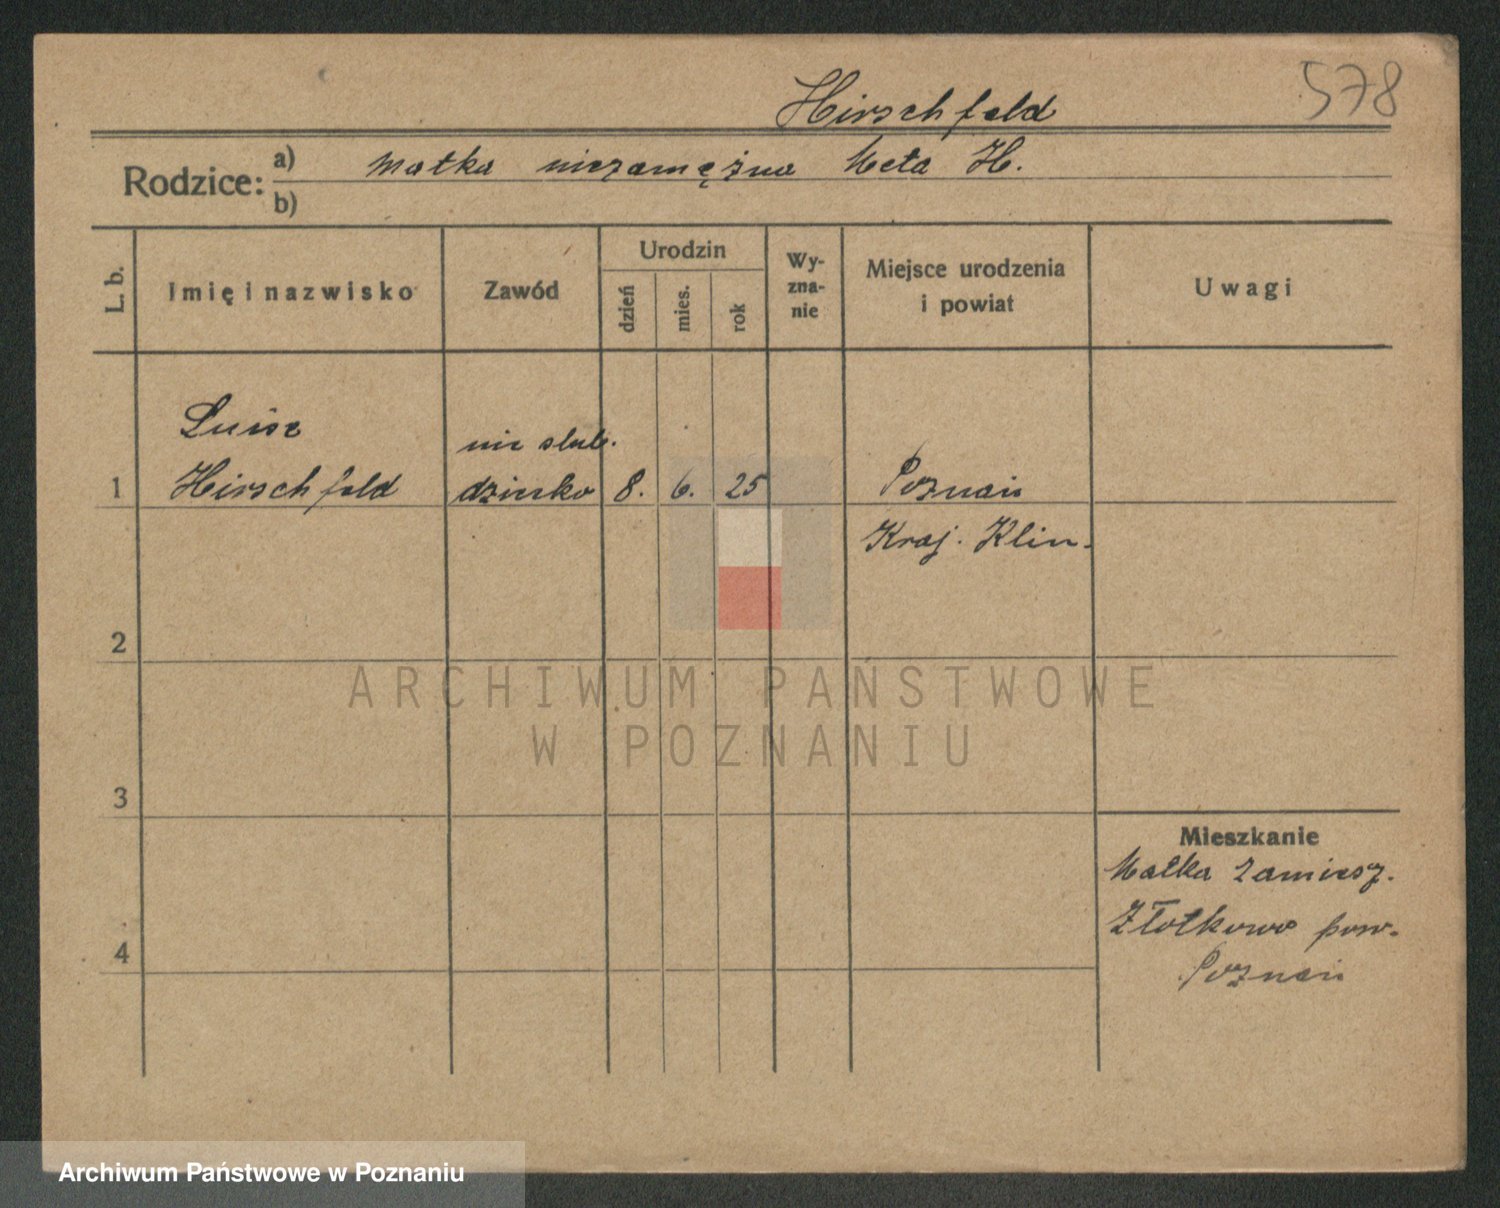 578
Hirschfeld
Rodzice: a) Matka niezamężna Meta H.
b)
L. b.
Imię i nazwisko
Zawód
Urodzin
dzień
mies.
rok
Wy-
zna-
nie
Miejsce urodzenia
i powiat
Uwagi
Luise
nie slub.
1 Hirschfeld dziecko 8. 6. 25 Poznań
Kraj. Klin.
2
3
4
Mieszkanie
Matka zamiesz.
Złotkowo pow.
Poznań
ARCHIWUM PAŃSTWOWE
W POZNANIU
Archiwum Państwowe w Poznaniu